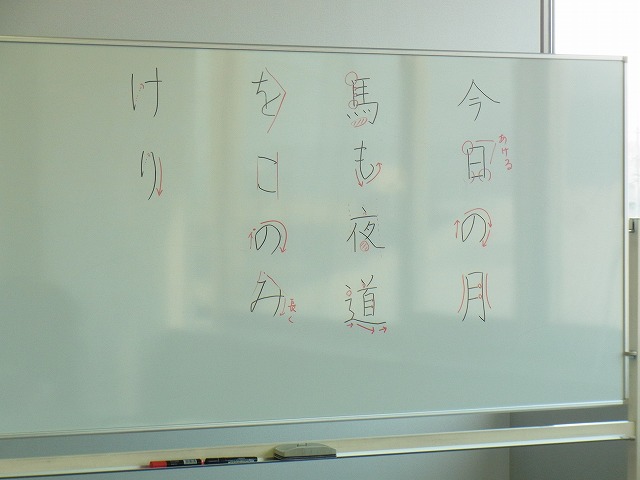 今日の月
あける
馬も夜道
をこのみ
長く
けり